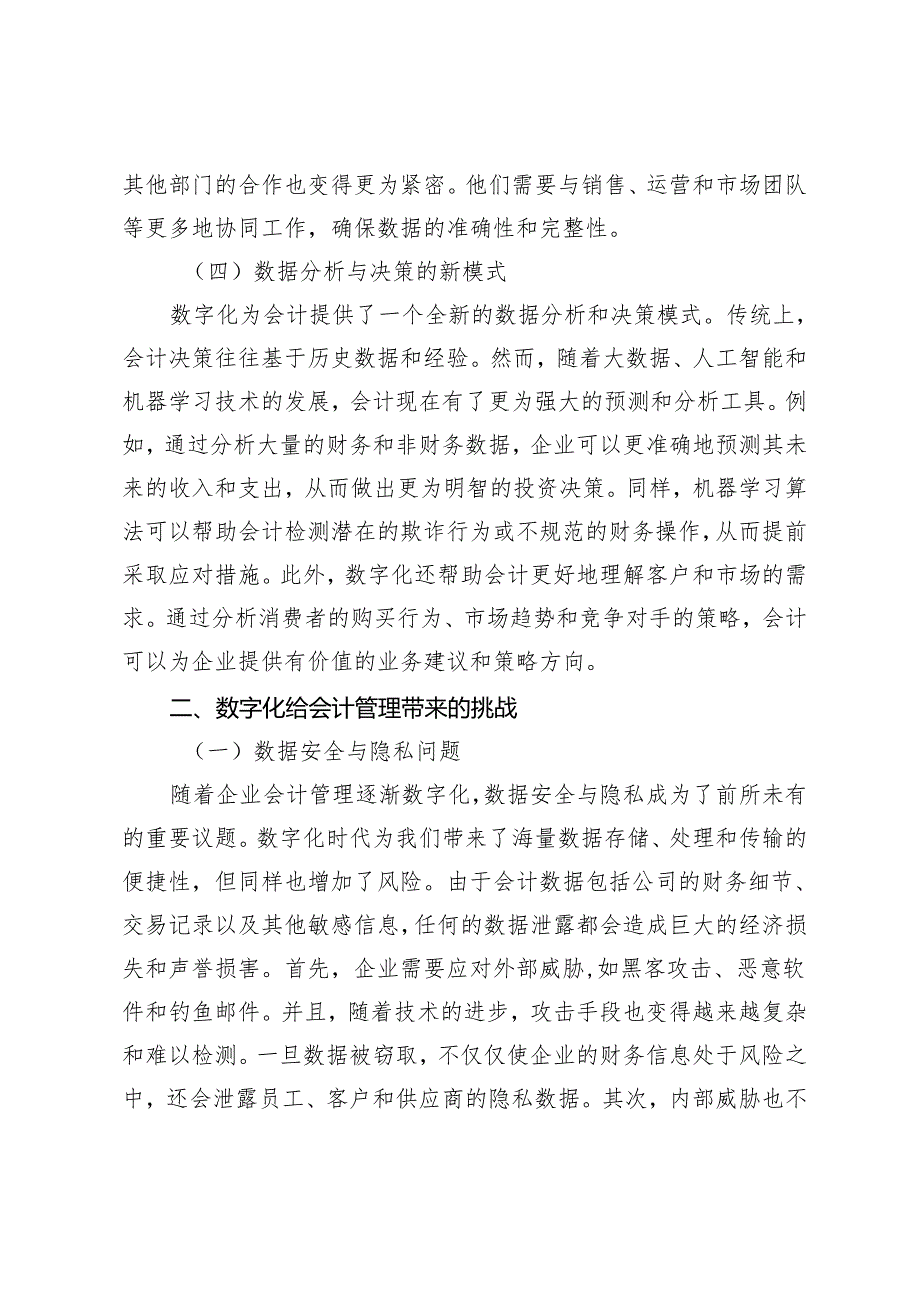 其他部门的合作也变得更为紧密。他们需要与销售、运营和市场团队
等更多地协同工作，确保数据的准确性和完整性。
（四）数据分析与决策的新模式
数字化为会计提供了一个全新的数据分析和决策模式。传统上，
会计决策往往基于历史数据和经验。然而，随着大数据、人工智能和
机器学习技术的发展，会计现在有了更为强大的预测和分析工具。例
如，通过分析大量的财务和非财务数据，企业可以更准确地预测其未
来的收入和支出，从而做出更为明智的投资决策。同样，机器学习算
法可以帮助会计检测潜在的欺诈行为或不规范的财务操作，从而提前
采取应对措施。此外，数字化还帮助会计更好地理解客户和市场的需
求。通过分析消费者的购买行为、市场趋势和竞争对手的策略，会计
可以为企业提供有价值的业务建议和策略方向。
二、数字化给会计管理带来的挑战
（一）数据安全与隐私问题
随着企业会计管理逐渐数字化，数据安全与隐私成为了前所未有
的重要议题。数字化时代为我们带来了海量数据存储、处理和传输的
便捷性，但同样也增加了风险。由于会计数据包括公司的财务细节、
交易记录以及其他敏感信息，任何的数据泄露都会造成巨大的经济损
失和声誉损害。首先，企业需要应对外部威胁，如黑客攻击、恶意软
件和钓鱼邮件。并且，随着技术的进步，攻击手段也变得越来越复杂
和难以检测。一旦数据被窃取，不仅仅使企业的财务信息处于风险之
中，还会泄露员工、客户和供应商的隐私数据。其次，内部威胁也不